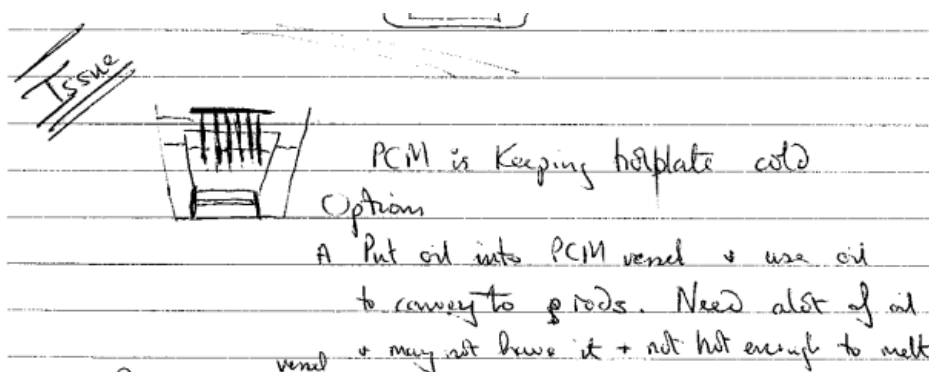 Issue
PCM is Keeping hotplate cold
Options
A Put oil into PCM vessel & use oil
to convey to rods. Need alot of oil
vessel & may not have it + not hot enough to melt